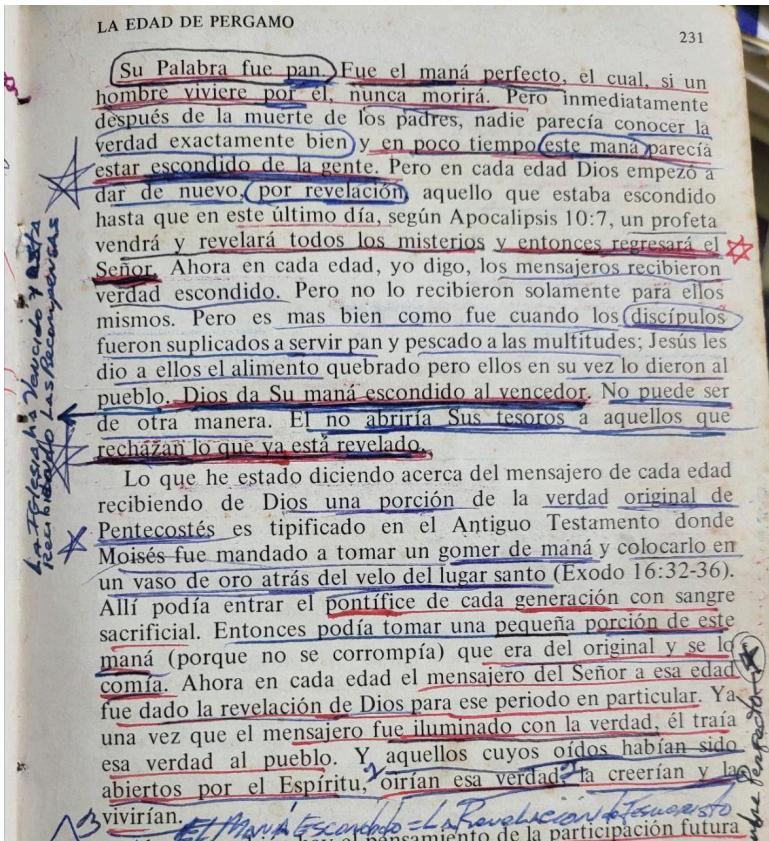 LA EDAD DE PERGAMO
231
Su Palabra fue pan. Fue el maná perfecto, el cual, si un
hombre viviere por él, nunca morirá. Pero inmediatamente
después de la muerte de los padres, nadie parecía conocer la
verdad exactamente bien y en poco tiempo este maná parecía
estar escondido de la gente. Pero en cada edad Dios empezó a
dar de nuevo, por revelación, aquello que estaba escondido
hasta que en este último día, según Apocalipsis 10:7, un profeta
vendrá y revelará todos los misterios y entonces regresará el
Señor. Ahora en cada edad, yo digo, los mensajeros recibieron
verdad escondido. Pero no lo recibieron solamente para ellos
mismos. Pero es mas bien como fue cuando los discípulos
fueron suplicados a servir pan y pescado a las multitudes; Jesús les
dio a ellos el alimento quebrado pero ellos en su vez lo dieron al
pueblo. Dios da Su maná escondido al vencedor. No puede ser
de otra manera. El no abriría Sus tesoros a aquellos que
rechazan lo que ya está revelado.
Lo que he estado diciendo acerca del mensajero de cada edad
recibiendo de Dios una porción de la verdad original de
Pentecostés es tipificado en el Antiguo Testamento donde
Moisés fue mandado a tomar un gomer de maná y colocarlo en
un vaso de oro atrás del velo del lugar santo (Exodo 16:32-36).
Allí podía entrar el pontífice de cada generación con sangre
sacrificial. Entonces podía tomar una pequeña porción de este
maná (porque no se corrompía) que era del original y se lo
comía. Ahora en cada edad el mensajero del Señor a esa edad
fue dado la revelación de Dios para ese periodo en particular. Ya
una vez que el mensajero fue iluminado con la verdad, él traía
esa verdad al pueblo. Y aquellos cuyos oídos habían sido
abiertos por el Espíritu, oirían esa verdad, la creerían y la
vivirían.
El Maná Escondido = La Revelación de Jesucristo
pensamiento de la participación futura
La Iglesia ha Vencido y está
Recibiendo Las Recompensas
Perfecto